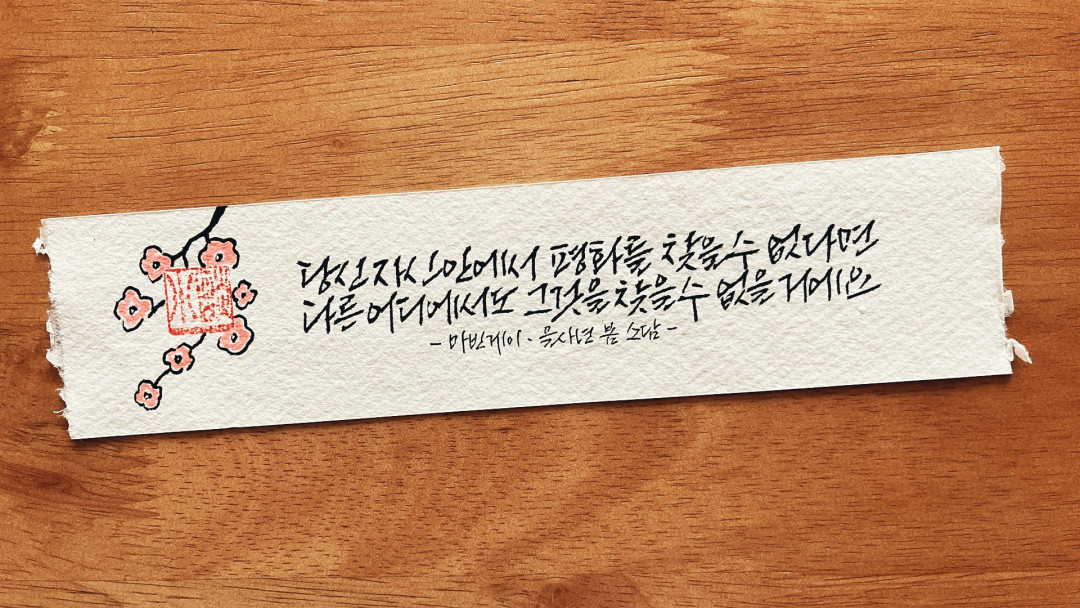 당신 자신 안에서 평화를 찾을 수 없다면
다른 어디에서도 그것을 찾을 수 없을 거에요
- 마빈게이 · 을사년 봄 소담 -